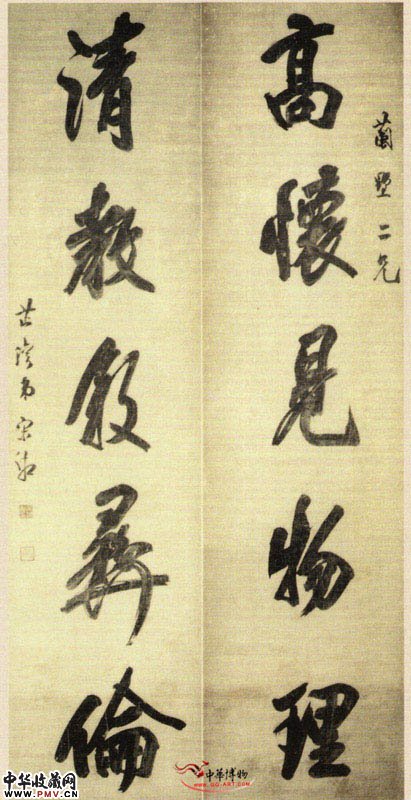 蘭墅二兄
高懷見物理
清教叙彝倫
芷灣弟宋湘
中华收藏网
WWW.PMV.CN
中華博物
WWW.GG-ART.COM